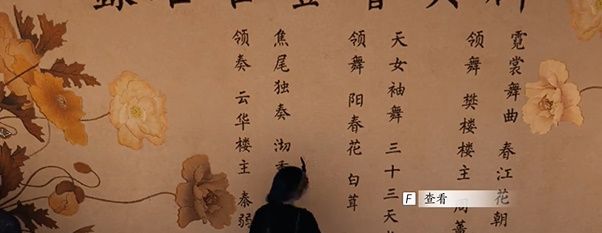 霓裳舞曲 春江花朝
领舞 樊楼楼主 周
天女袖舞 三十三天
领舞 阳春花 白茸
焦尾独奏 沏
领奏 云华楼主 秦弱
F 查看